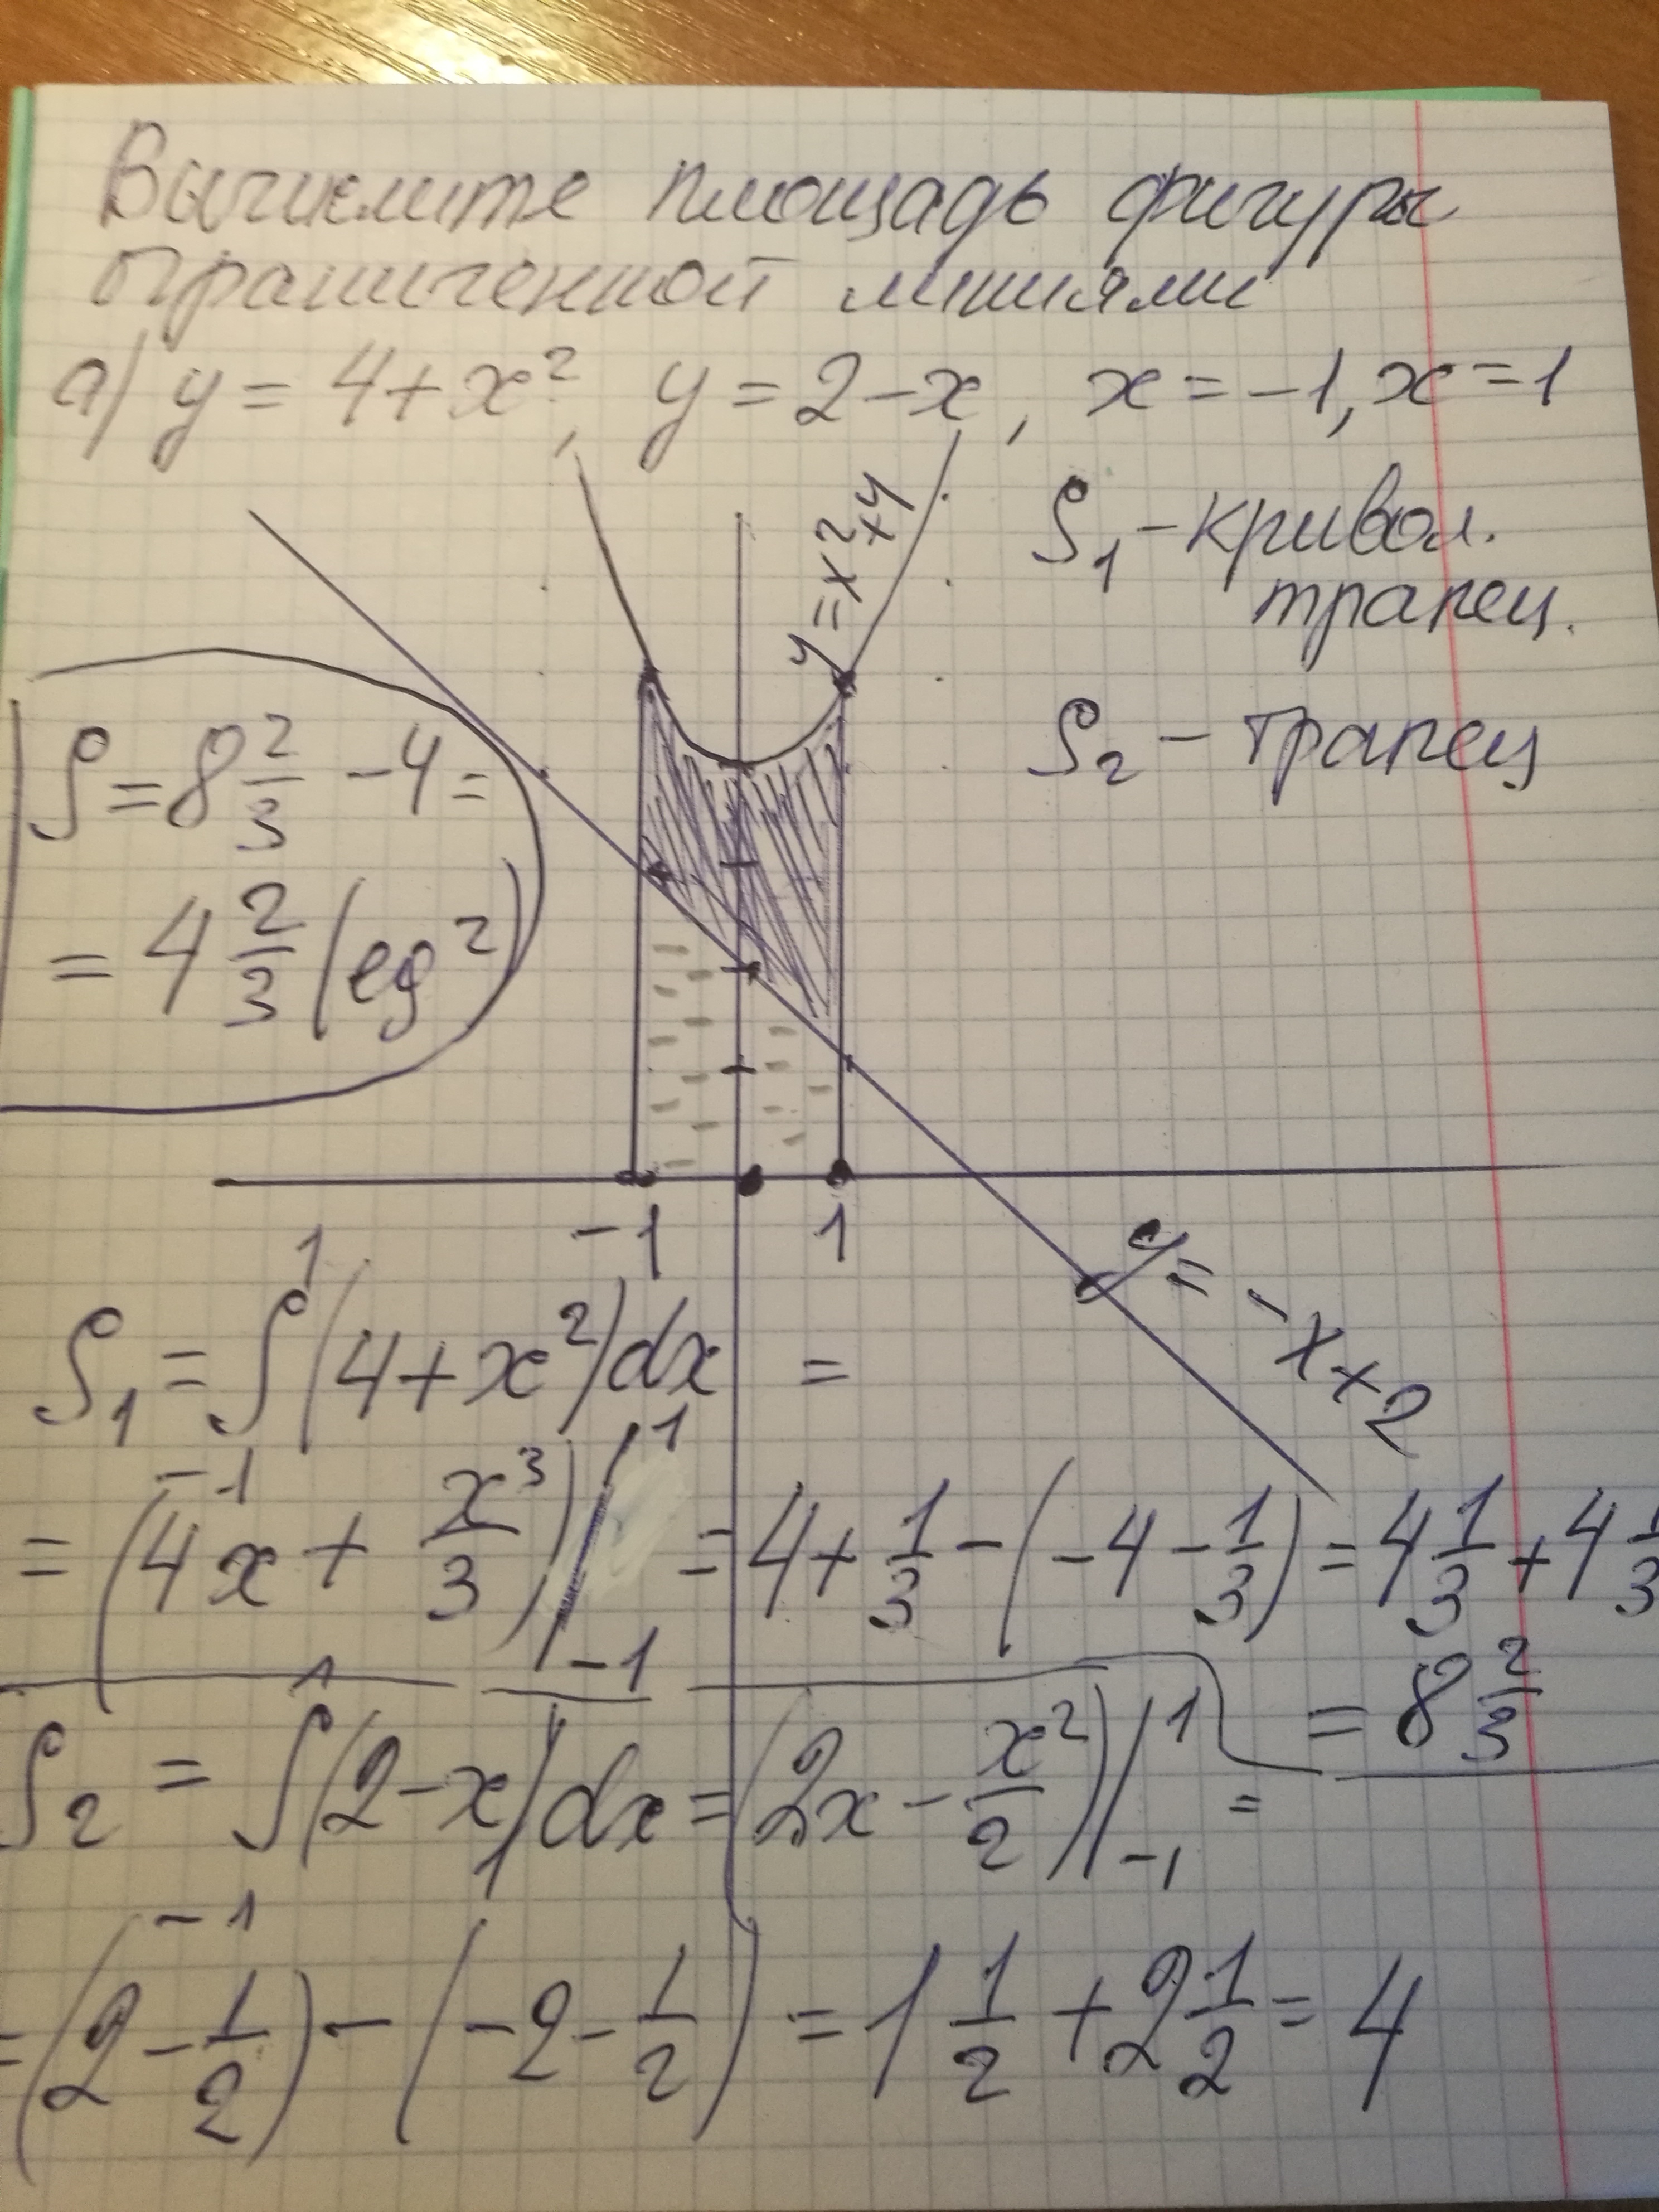 Вычислите площадь фигуры
ограниченной линиями
а) y = 4 + x², y = 2 - x, x = -1, x = 1
y = x² + 4
S₁ - кривол.
трапец.
S₂ - трапец
S = 8 2/3 - 4 =
= 4 2/3 (ед²)
-1 1
y = -x + 2
S₁ = ∫₋₁¹ (4 + x²) dx =
= (4x + x³/3) |₋₁¹ = 4 + 1/3 - (-4 - 1/3) = 4 1/3 + 4 1/3
= 8 2/3
S₂ = ∫₋₁¹ (2 - x) dx = (2x - x²/2) |₋₁¹ =
= (2 - 1/2) - (-2 - 1/2) = 1 1/2 + 2 1/2 = 4